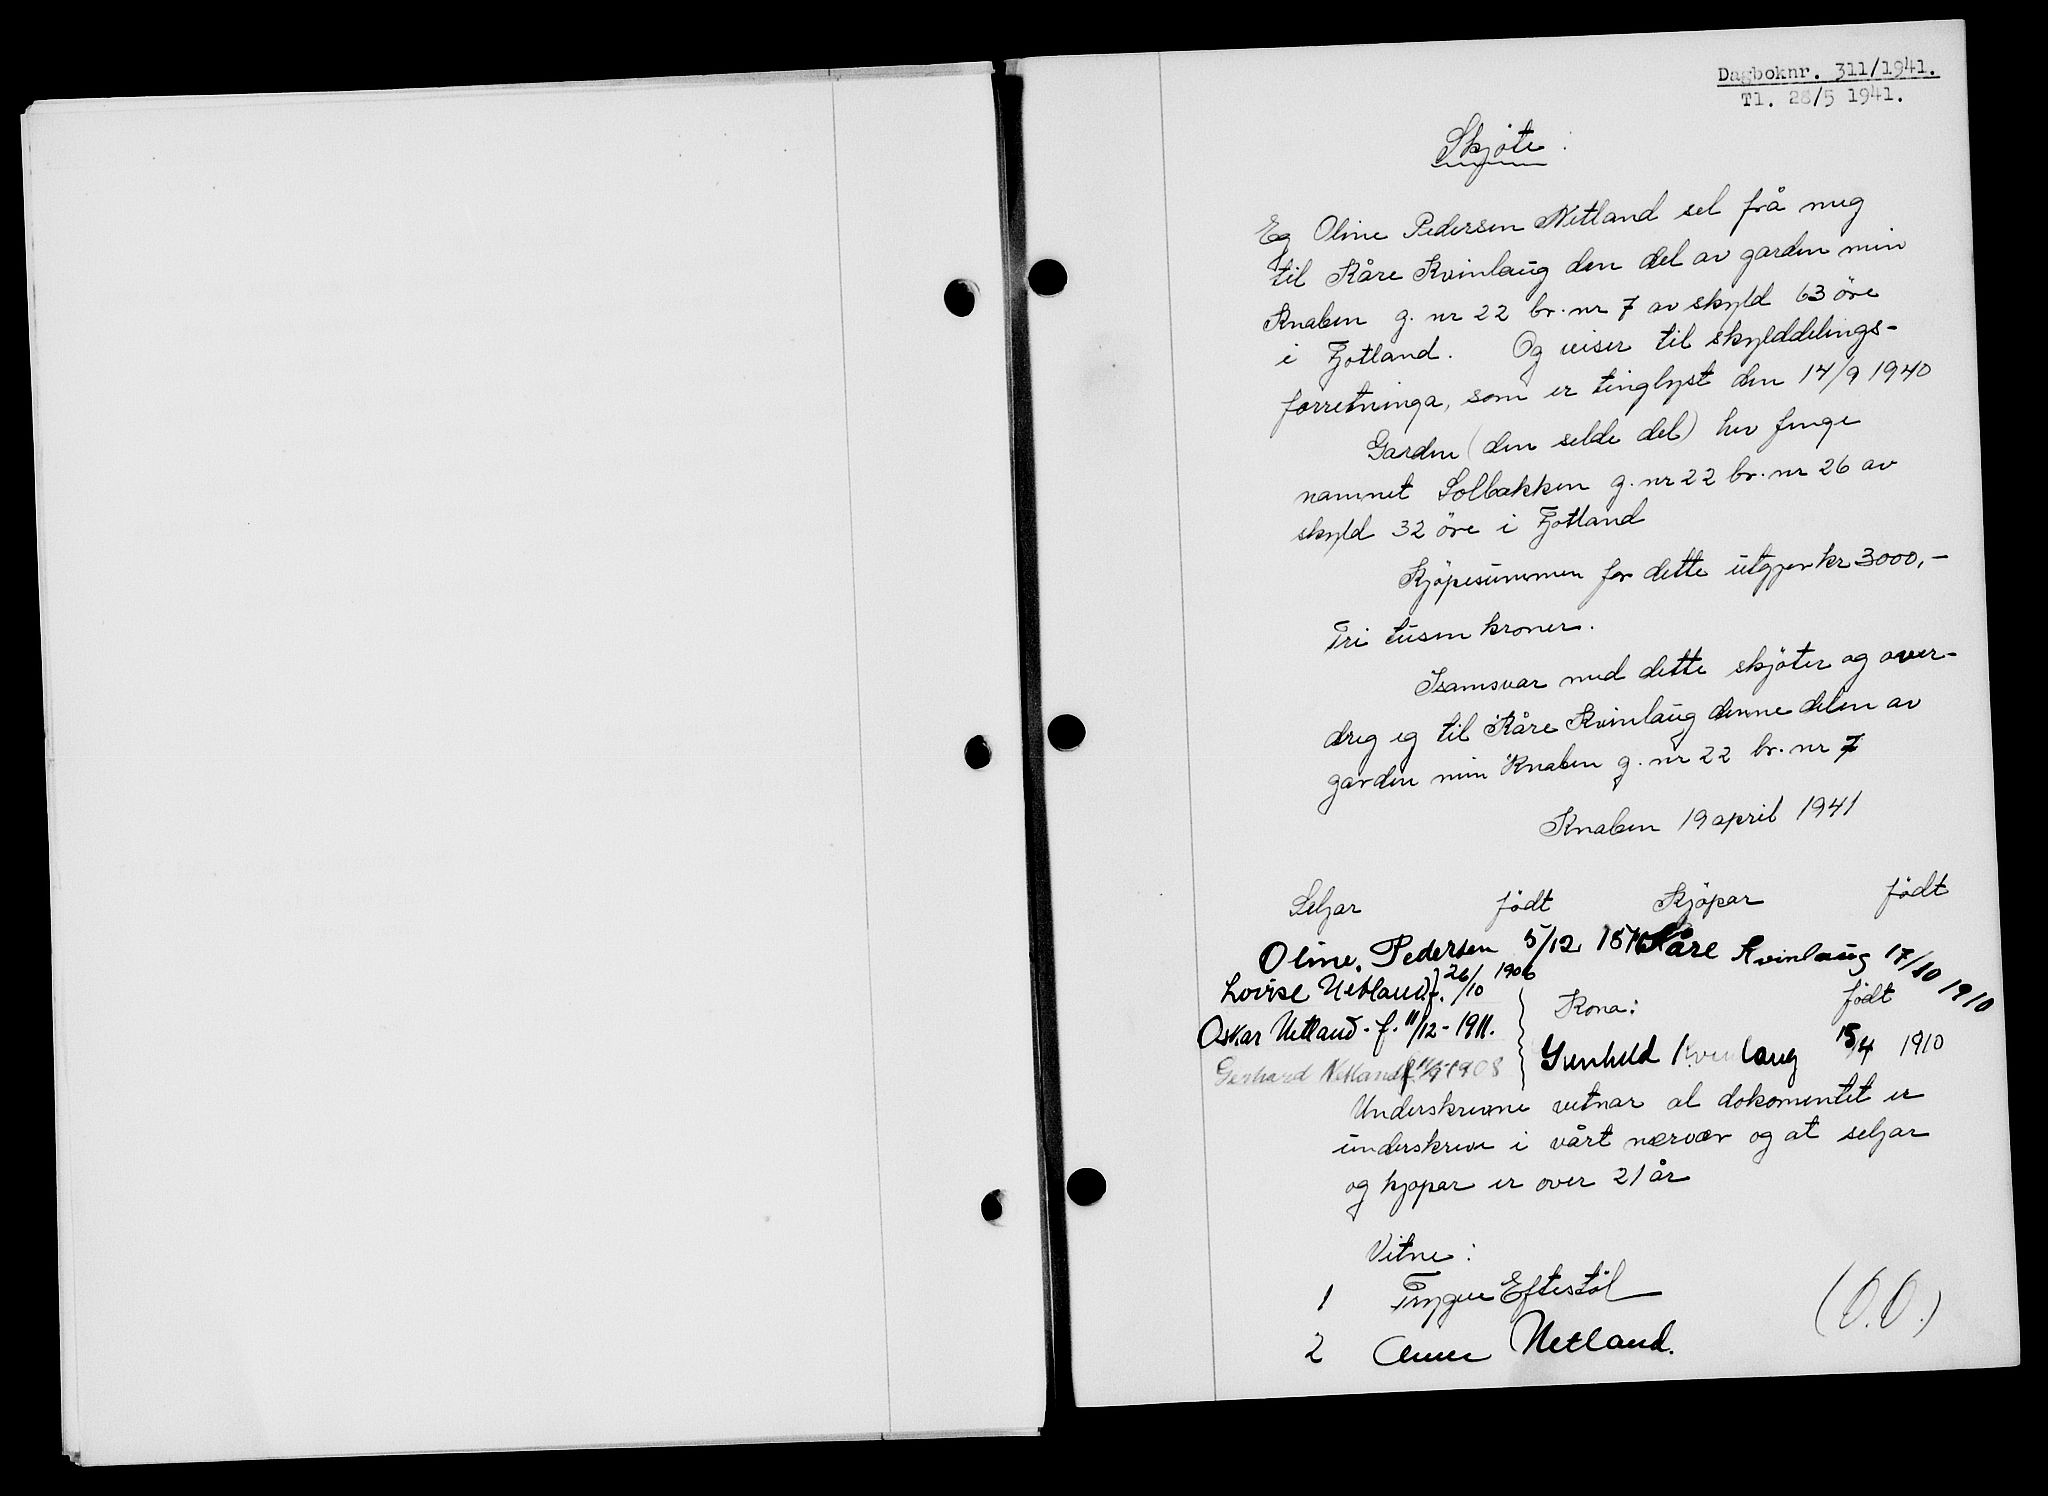 Dagboknr. 311/1941.
Tl. 28/5 1941.
Skjöte:
Eg Oline Pedersen Netland sel frå meg
til Kåre Kvinlaug den del av garden min
Knaben g. nr 22 br. nr 7 av skyld 63 öre
i Fjotland. Og viser til skylddelings-
forretninga, som er tinglyst den 14/9 1940
Garden (den selde del) hev fenge
namnet Solbakken g. nr 22 br. nr 26 av
skyld 32 öre i Fjotland
Kjöpesummen for dette utgjer kr 3000,-
Tri tusen kroner.
Isamsvar med dette skjöter og over-
dreg eg til Kåre Kvinlaug denne delen av
garden min Knaben g. nr 22 br. nr 7
Knaben 19 april 1941
Seljar födt Kjöpar födt
Oline Pedersen 5/12 Kåre Kvinlaug 17/10 1910
Lovise Netland f. 26/10 1906
Kona: födt
Oskar Netland. f. 11/12 - 1911.
Gunhild Kvinlaug 15/4 1910
Gerhard Netland f. 1908
Underskrivne vitnar at dokomentet er
underskreve i vårt nærvær og at seljar
og kjopar er over 21 år
Vitne:
1 Trygve Eftestöl
2 Anne Netland.
(O.O.)